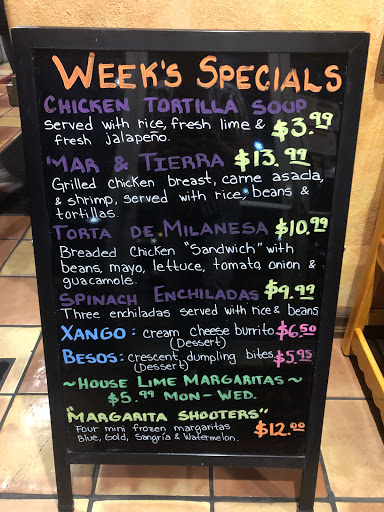 WEEK'S SPECIALS
CHICKEN TORTILLA SOUP
served with rice, fresh lime & $3.99
fresh jalapeño.
'MAR & TIERRA $13.99
Grilled chicken breast, carne asada,
& shrimp, served with rice, beans &
tortillas.
TORTA DE MILANESA $10.99
Breaded Chicken "Sandwich" with
beans, mayo, lettuce, tomato, onion &
guacamole.
SPINACH ENCHILADAS $9.99
Three enchiladas served with rice & beans
XANGO: cream cheese burrito $6.50
(Dessert)
BESOS: crescent dumpling bites $5.95
(Dessert)
~HOUSE LIME MARGARITAS~
$5.99 MON-WED.
"MARGARITA SHOOTERS"
Four mini frozen margaritas $12.00
Blue, Gold, Sangria & Watermelon.